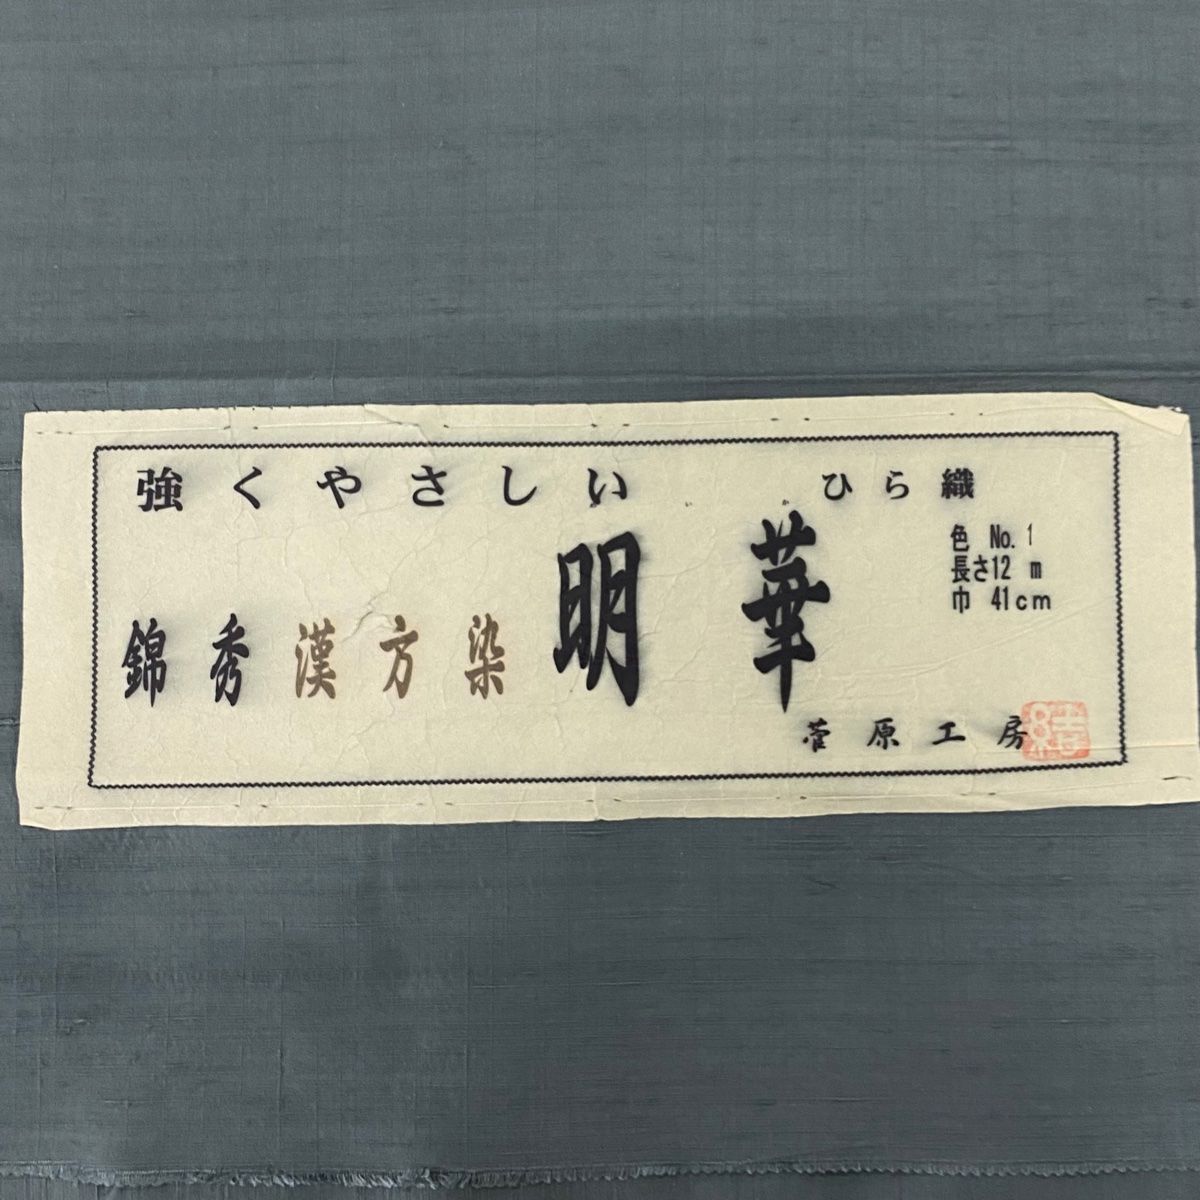 強くやさしい　ひら織
明華
色 No.1
長さ12 m
巾 41cm
錦秀漢方染
菅原工房